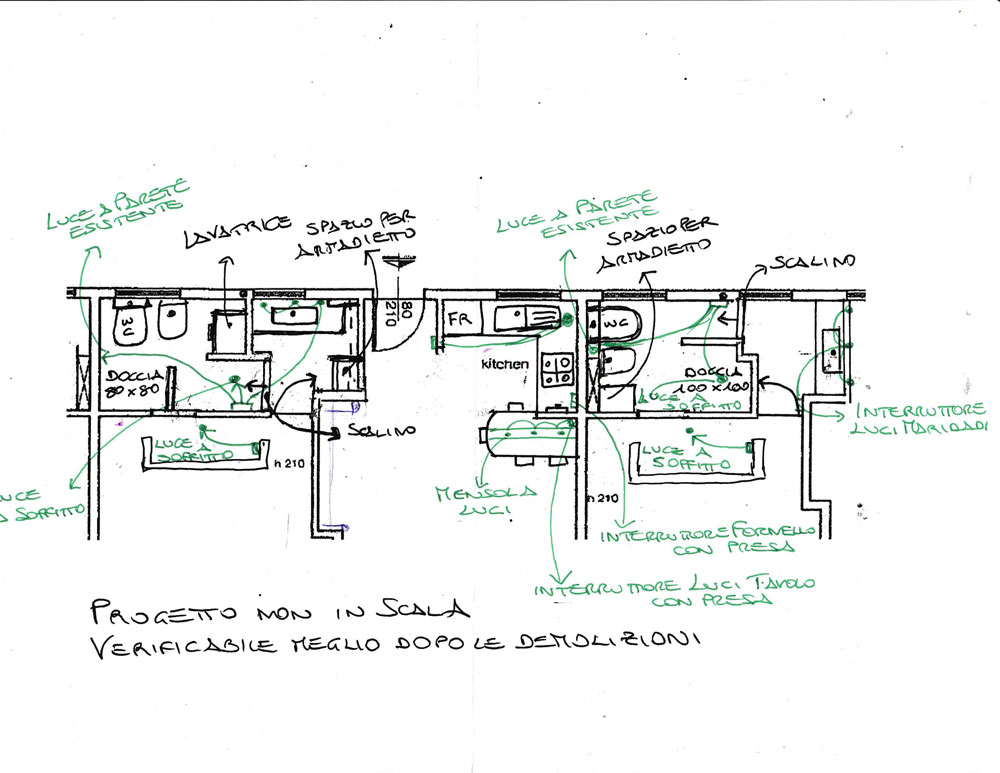 LUCE A PARETE
ESISTENTE
LAVATRICE
SPAZIO PER
ARMADIETTO
LUCE A PARETE
ESISTENTE
SPAZIO PER
ARMADIETTO
SCALINO
80
210
FR
WC
kitchen
DOCCIA
80x80
DOCCIA
100x100
LUCE A
SOFFITTO
SCALINO
INTERRUTTORE
LUCI
LUCE
A
SOFFITTO
h 210
LUCE A
SOFFITTO
MENSOLA
LUCI
h 210
LUCE
A SOFFITTO
INTERRUTTORE FORNELLO
CON PRESA
INTERRUTTORE LUCI TAVOLO
CON PRESA
PROGETTO NON IN SCALA
VERIFICABILE MEGLIO DOPO LE DEMOLIZIONI